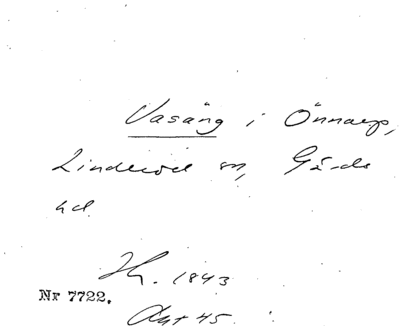 Vasäng i Önnarp,
Linderöd sn, Gärds
hd
Sk. 1843
Nr 7722.
Akt 45